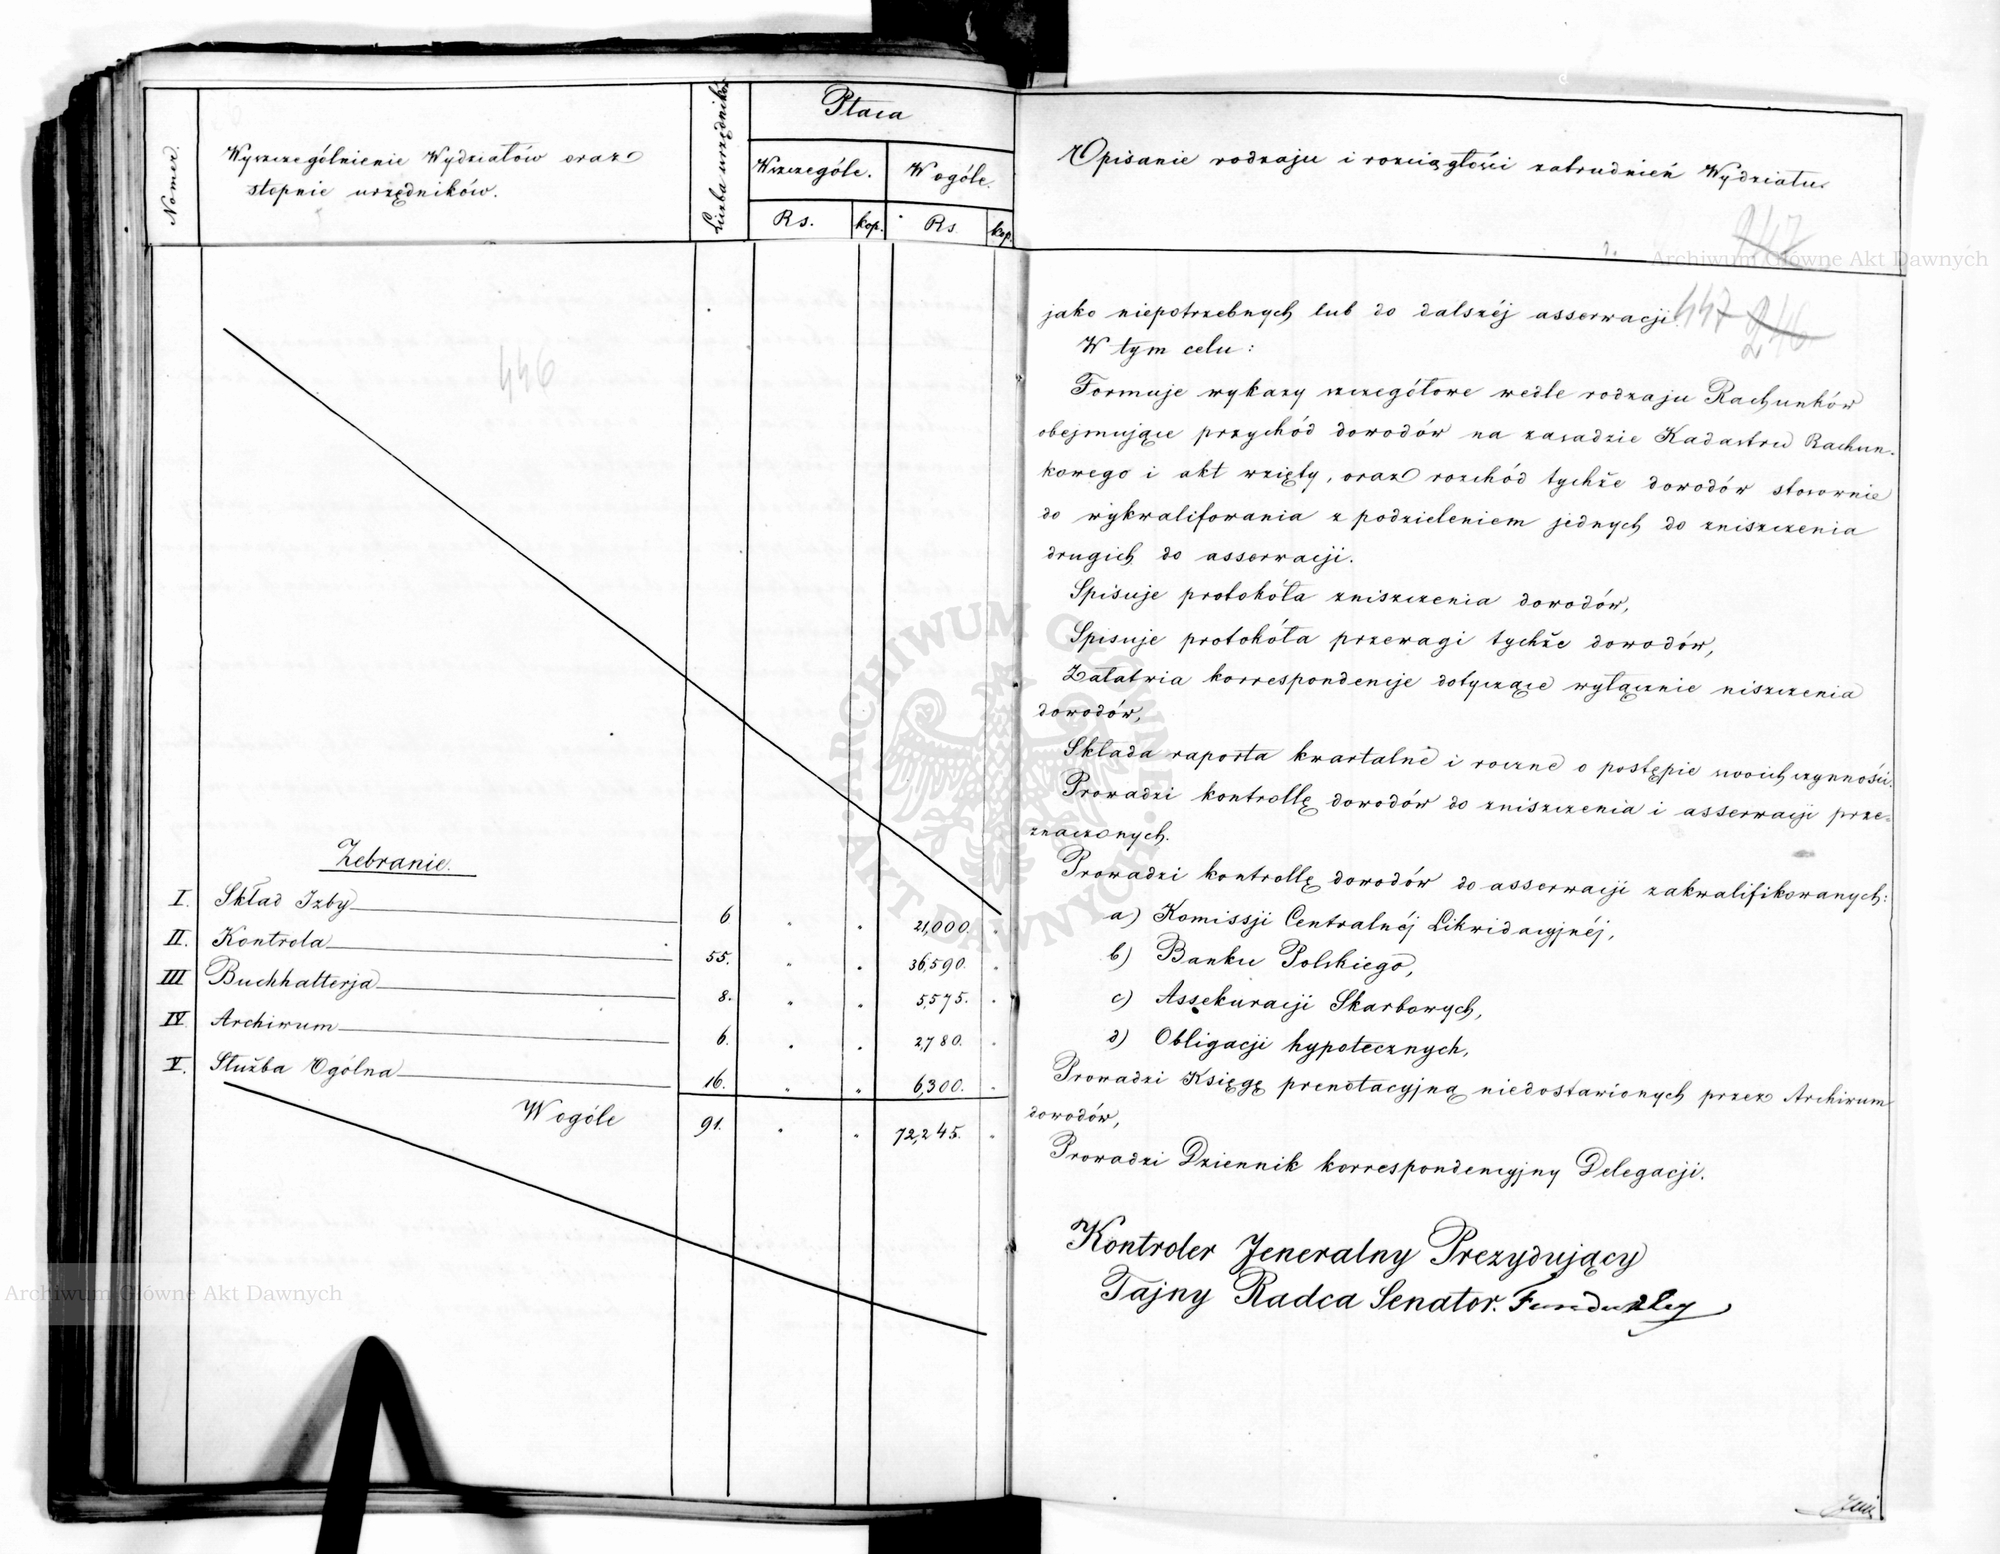 Nomer.
Wyszczególnienie Wydziałów oraz
stopnie urzędników.
Liczba urzędników
Płaca
Wszczególe.
Wogóle.
Rs.
kop.
Rs
kop.
446
Zebranie.
I. Skład Izby 6 " " 21,000. "
II. Kontrola 55. " " 36,590. "
III Buchhalterja 8. " " 5,575. "
IV. Archiwum 6. " " 2,780. "
V. Służba Ogólna 16. " " 6,300. "
Wogóle 91. " " 72,245. "
Opisanie rodzaju i rozciągłości zatrudnień Wydziału.
247
jako niepotrzebnych lub do dalszéj asserwacji. 447 246
W tym celu:
Formuje wykazy szczegółowe wedle rodzaju Rachunków
obejmujące przychód dowodów na zasadzie Kadastru Rachun-
kowego i akt wzięty, oraz rozchód tychże dowodów stosownie
do wykwalifowania z podzieleniem jednych do zniszczenia
drugich do asserwacji.
Spisuje protokóła zniszczenia dowodów,
Spisuje protokóła przewagi tychże dowodów,
Załatwia korrespondencje dotyczące wyłącznie niszczenia
dowodów,
Składa raporta kwartalne i roczne o postępie swoich czynności.
Prowadzi kontrollę dowodów do zniszczenia i asserwacji prze-
znaczonych.
Prowadzi kontrollę dowodów do asserwacji zakwalifikowanych:
a) Komissji Centralnéj Likwidacyjnéj,
b) Banku Polskiego,
c) Assekuracji Skarbowych,
d) Obligacji hypotecznych,
Prowadzi Księgę prenotacyjną niedostawionych przez Archiwum
dowodów,
Prowadzi Dziennik korrespondencyjny Delegacji.
Kontroler Jeneralny Prezydujący
Tajny Radca Senator. Funduklej
Archiwum Główne Akt Dawnych
Archiwum Główne Akt Dawnych
ARCHIWUM GŁÓWNE AKT DAWNYCH